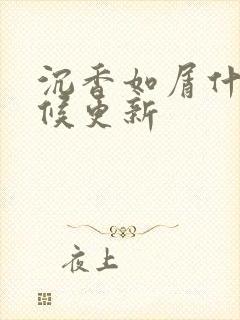 沉香如屑什
候更新
夜上